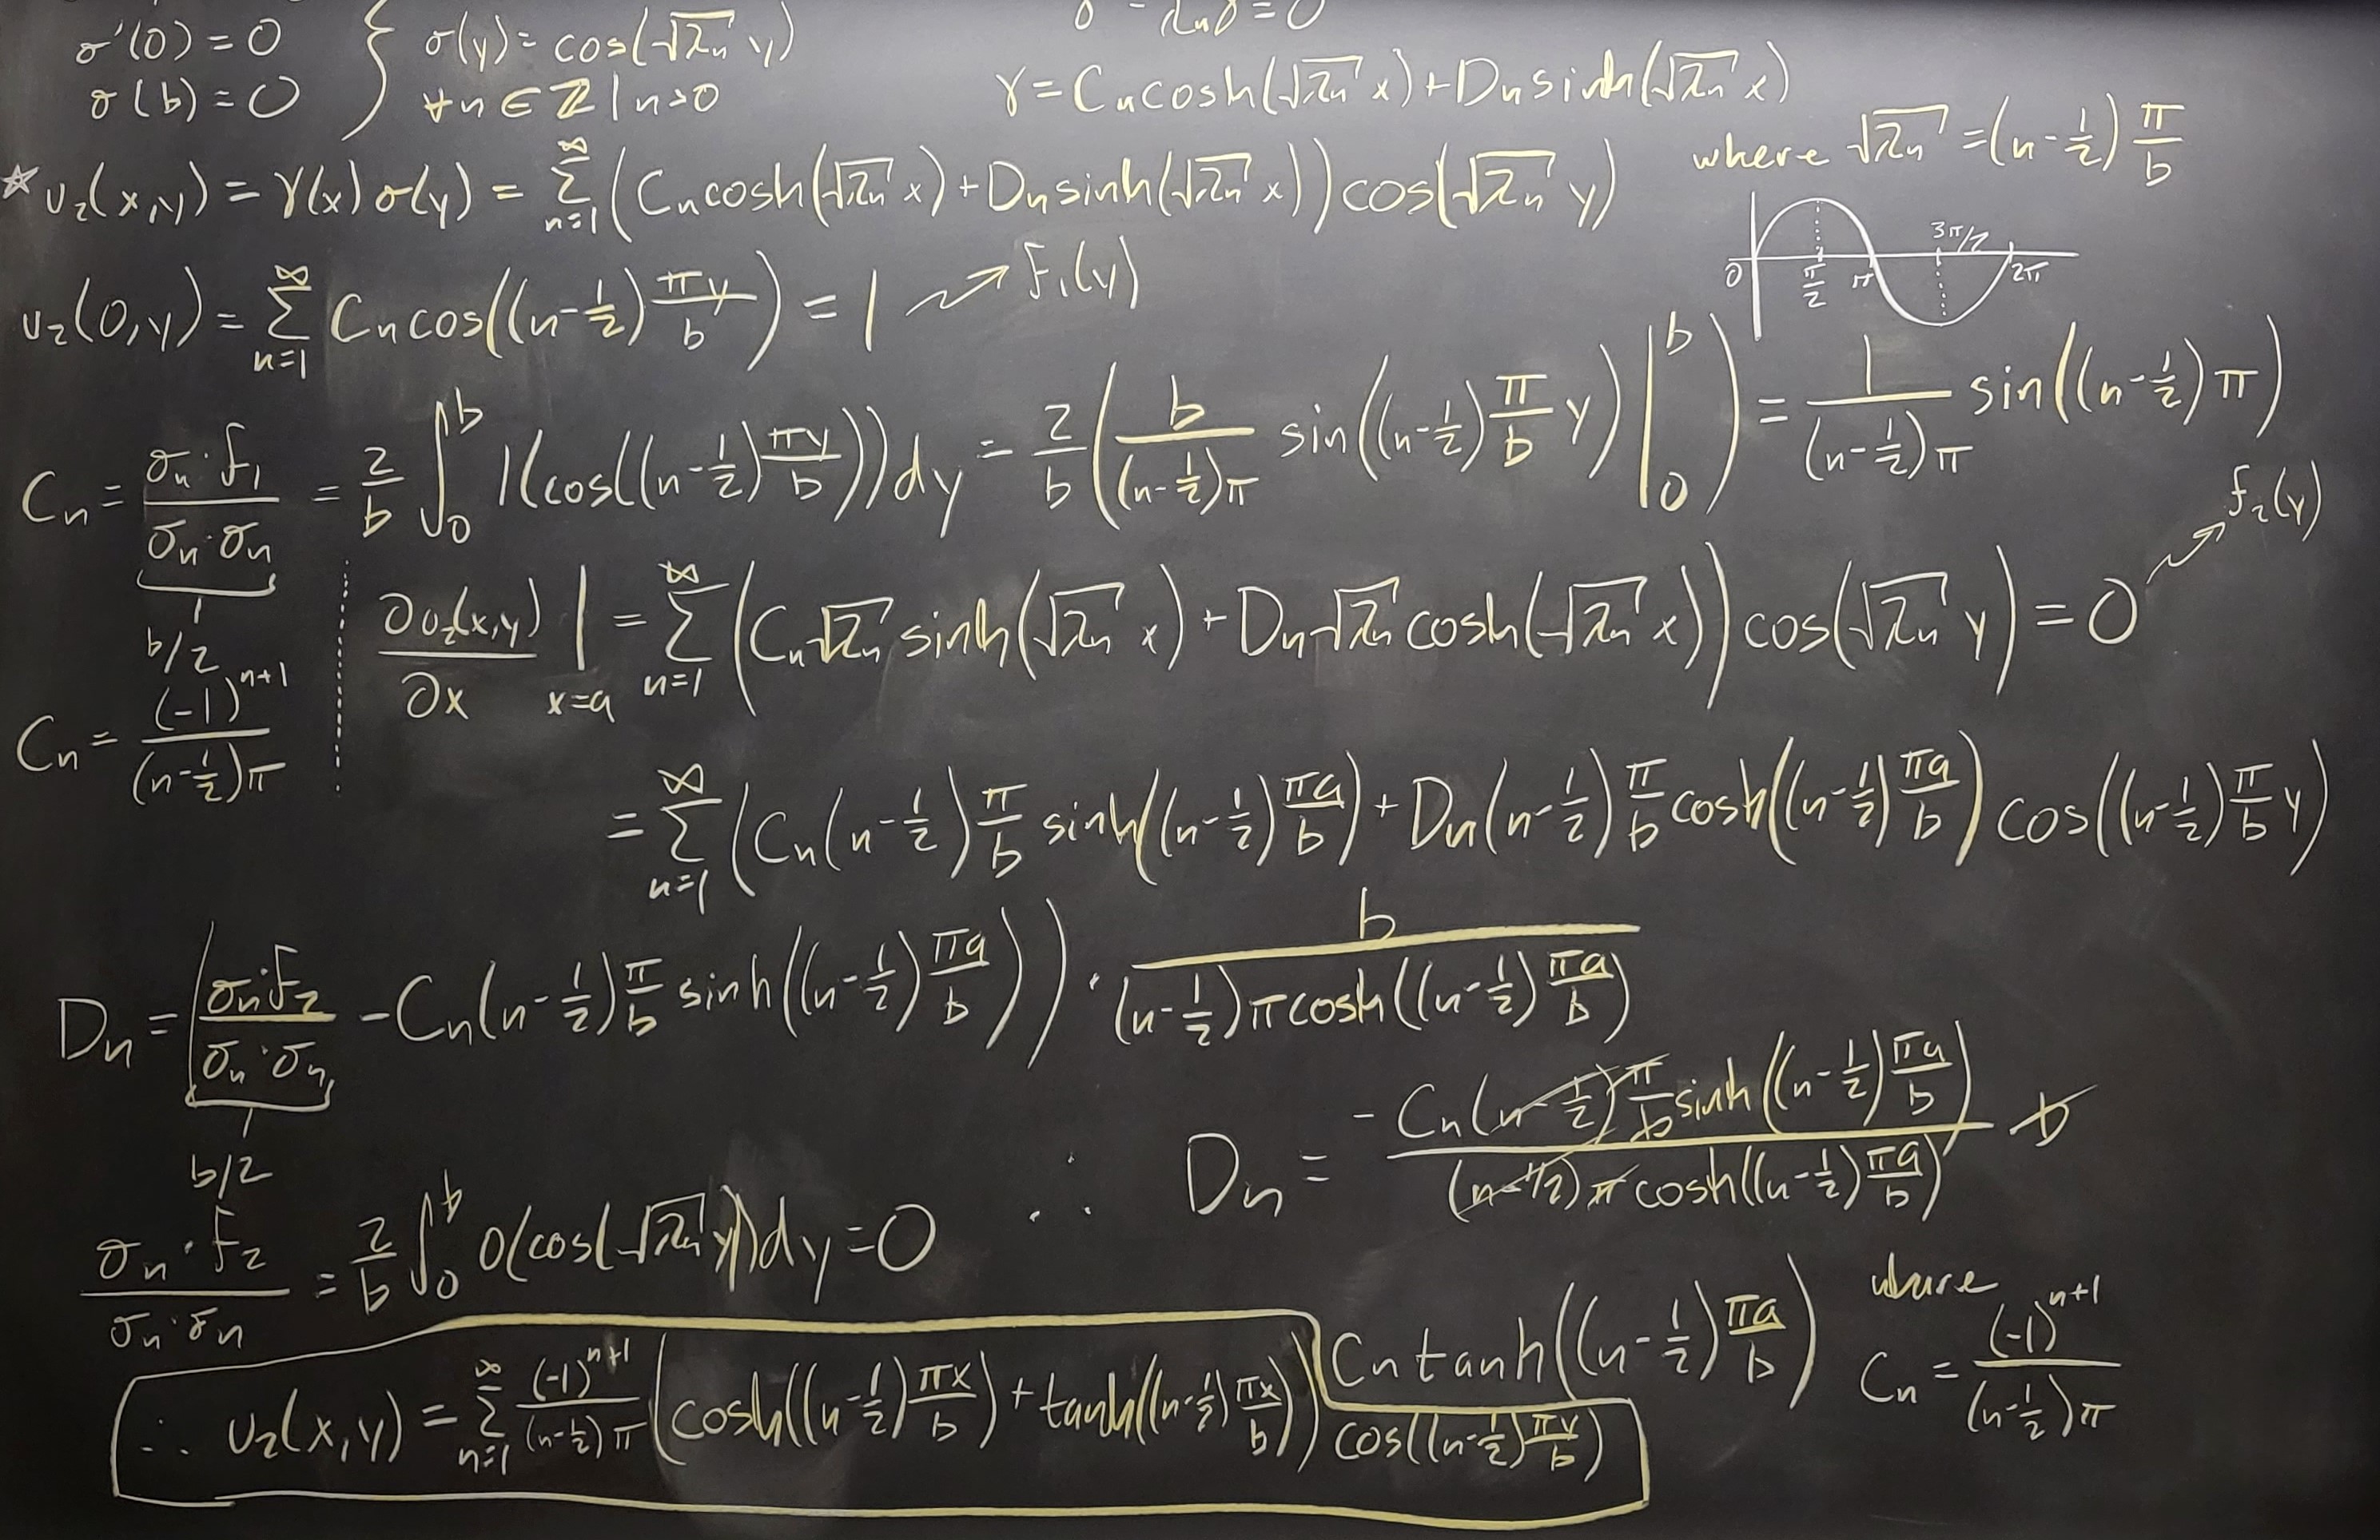 σ'(0) = 0 } σ(y) = cos(√λn y)
σ - λnσ = 0
σ(b) = 0 ∀n ∈ ℤ | n>0
γ = Cn cosh(√λn x) + Dn sinh(√λn x)
where √λn = (n-1/2) π/b
☆ u₂(x,y) = γ(x) σ(y) = ∑_{n=1}^{∞} (Cn cosh(√λn x) + Dn sinh(√λn x)) cos(√λn y)
0 π/2 π 3π/2 2π
u₂(0,y) = ∑_{n=1}^{∞} Cn cos((n-1/2) πy/b) = 1 → f₁(y)
Cn = (σn · f₁)/(σn · σn) = 2/b ∫₀^b 1(cos((n-1/2) πy/b)) dy = 2/b (b/((n-1/2)π) sin((n-1/2) π/b y) |₀^b) = 1/((n-1/2)π) sin((n-1/2)π)
b/2
∂u₂(x,y)/∂x |_{x=a} = ∑_{n=1}^{∞} (Cn √λn sinh(√λn x) + Dn √λn cosh(√λn x)) cos(√λn y) = 0 → f₂(y)
Cn = (-1)^{n+1}/((n-1/2)π)
= ∑_{n=1}^{∞} (Cn (n-1/2) π/b sinh((n-1/2) πa/b) + Dn (n-1/2) π/b cosh((n-1/2) πa/b) cos((n-1/2) π/b y)
Dn = ((σn·f₂)/(σn·σn) - Cn (n-1/2) π/b sinh((n-1/2) πa/b)) · b/((n-1/2) π cosh((n-1/2) πa/b))
b/2
∴ Dn = -Cn (n-1/2) π/b sinh((n-1/2) πa/b) / ((n-1/2) π cosh((n-1/2) πa/b)) b
(σn · f₂)/(σn · σn) = 2/b ∫₀^b 0(cos(√λn y)) dy = 0
Cn tanh((n-1/2) πa/b) where Cn = (-1)^{n+1}/((n-1/2)π)
∴ u₂(x,y) = ∑_{n=1}^{∞} (-1)^{n+1}/((n-1/2)π) (cosh((n-1/2) πx/b) + tanh((n-1/2) πx/b)) cos((n-1/2) πy/b)